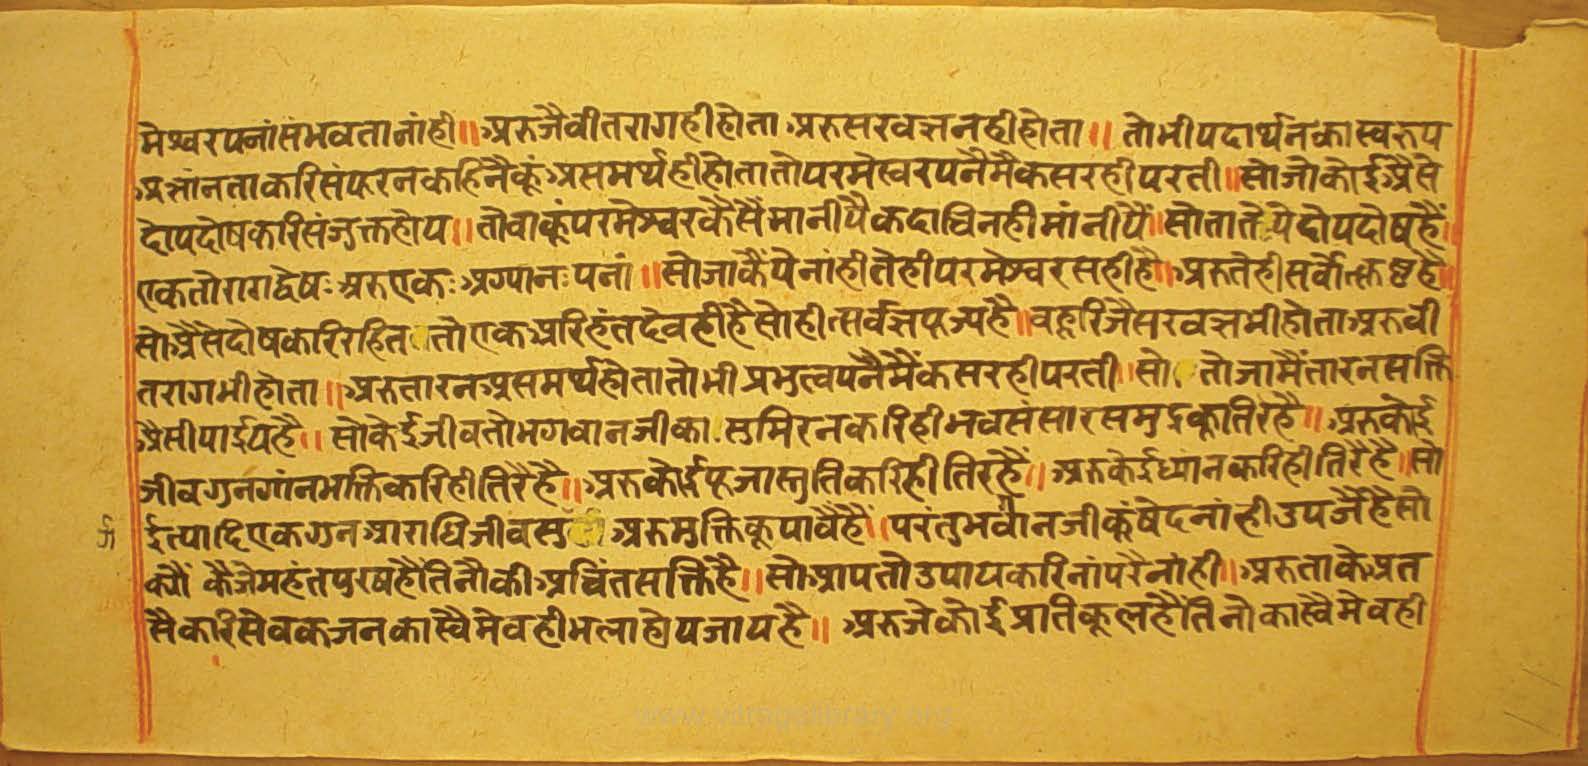 मेश्वरपनांसंभवतानांही॥अरुजैवीतरागहीहोताअरुसरवज्ञनहीहोता॥तोभीपदार्थनकास्वरुप
अज्ञांनताकरिसंपूरनकहिनैकूंअसमर्थहीहोतातोपरमेस्वरपनैमैकसरहीपरती॥सोजोकोईअैसे
दोयदोषकरिसंजुक्तहोय॥तोवाकूंपरमेश्वरकैसैंमानीयैकदाचिनहीमांनीयैं॥सोतातेयेदोयदोषहैं॥
एकतोरागद्वेषःअरुएकःअग्यानःपनां॥सोजाकैंयेनांहीतेहीपरमेश्वरसहीहै॥अरुतेहीसर्वोत्कृष्टहै॥
सोअैसेदोषकरिरहिततोएकअरिहंतदेवहीहैसोहीसर्वज्ञपूज्यहै॥बहूरिजैसरवज्ञभीहोताअरुवी
तरागभीहोता॥अरुतारनअसमर्थहोतातोभीप्रभुत्वपनैमैंकसरहीपरती॥सोतोजामैंतारनसक्ति
अैसीपाईयहै॥सोकेईजीवतोभगवानजीकासुमिरनकरिहीभवसंसारसमुद्रकूतिरहै॥अरुकोई
जीवगुनगांनभक्तिकरिहीतिरैहै॥अरुकोईपूजास्तुतिकरिहीतिरहैं॥अरुकेईध्यानकरिहीतिरैहै॥सो
ईत्यादिएकगुनआराधिजीवसुअरुमुक्तिकूपावैहैं॥परंतुभवांनजीकूंषेदनांहीउपजैंहैसो
ग
क्यौंकैजेमहंतपुरषहैंतिनौकीअचिंतसक्तिहै॥सोआपतोउपायकरिनांपरैनांही॥अरुताकेअत
सैकरिसेवकजनकास्वैमेवहीभलाहोयजायहै॥अरुजेकोईप्रतिकूलहैंतिनोकास्वैमेवही
www.vitragalibrary.org